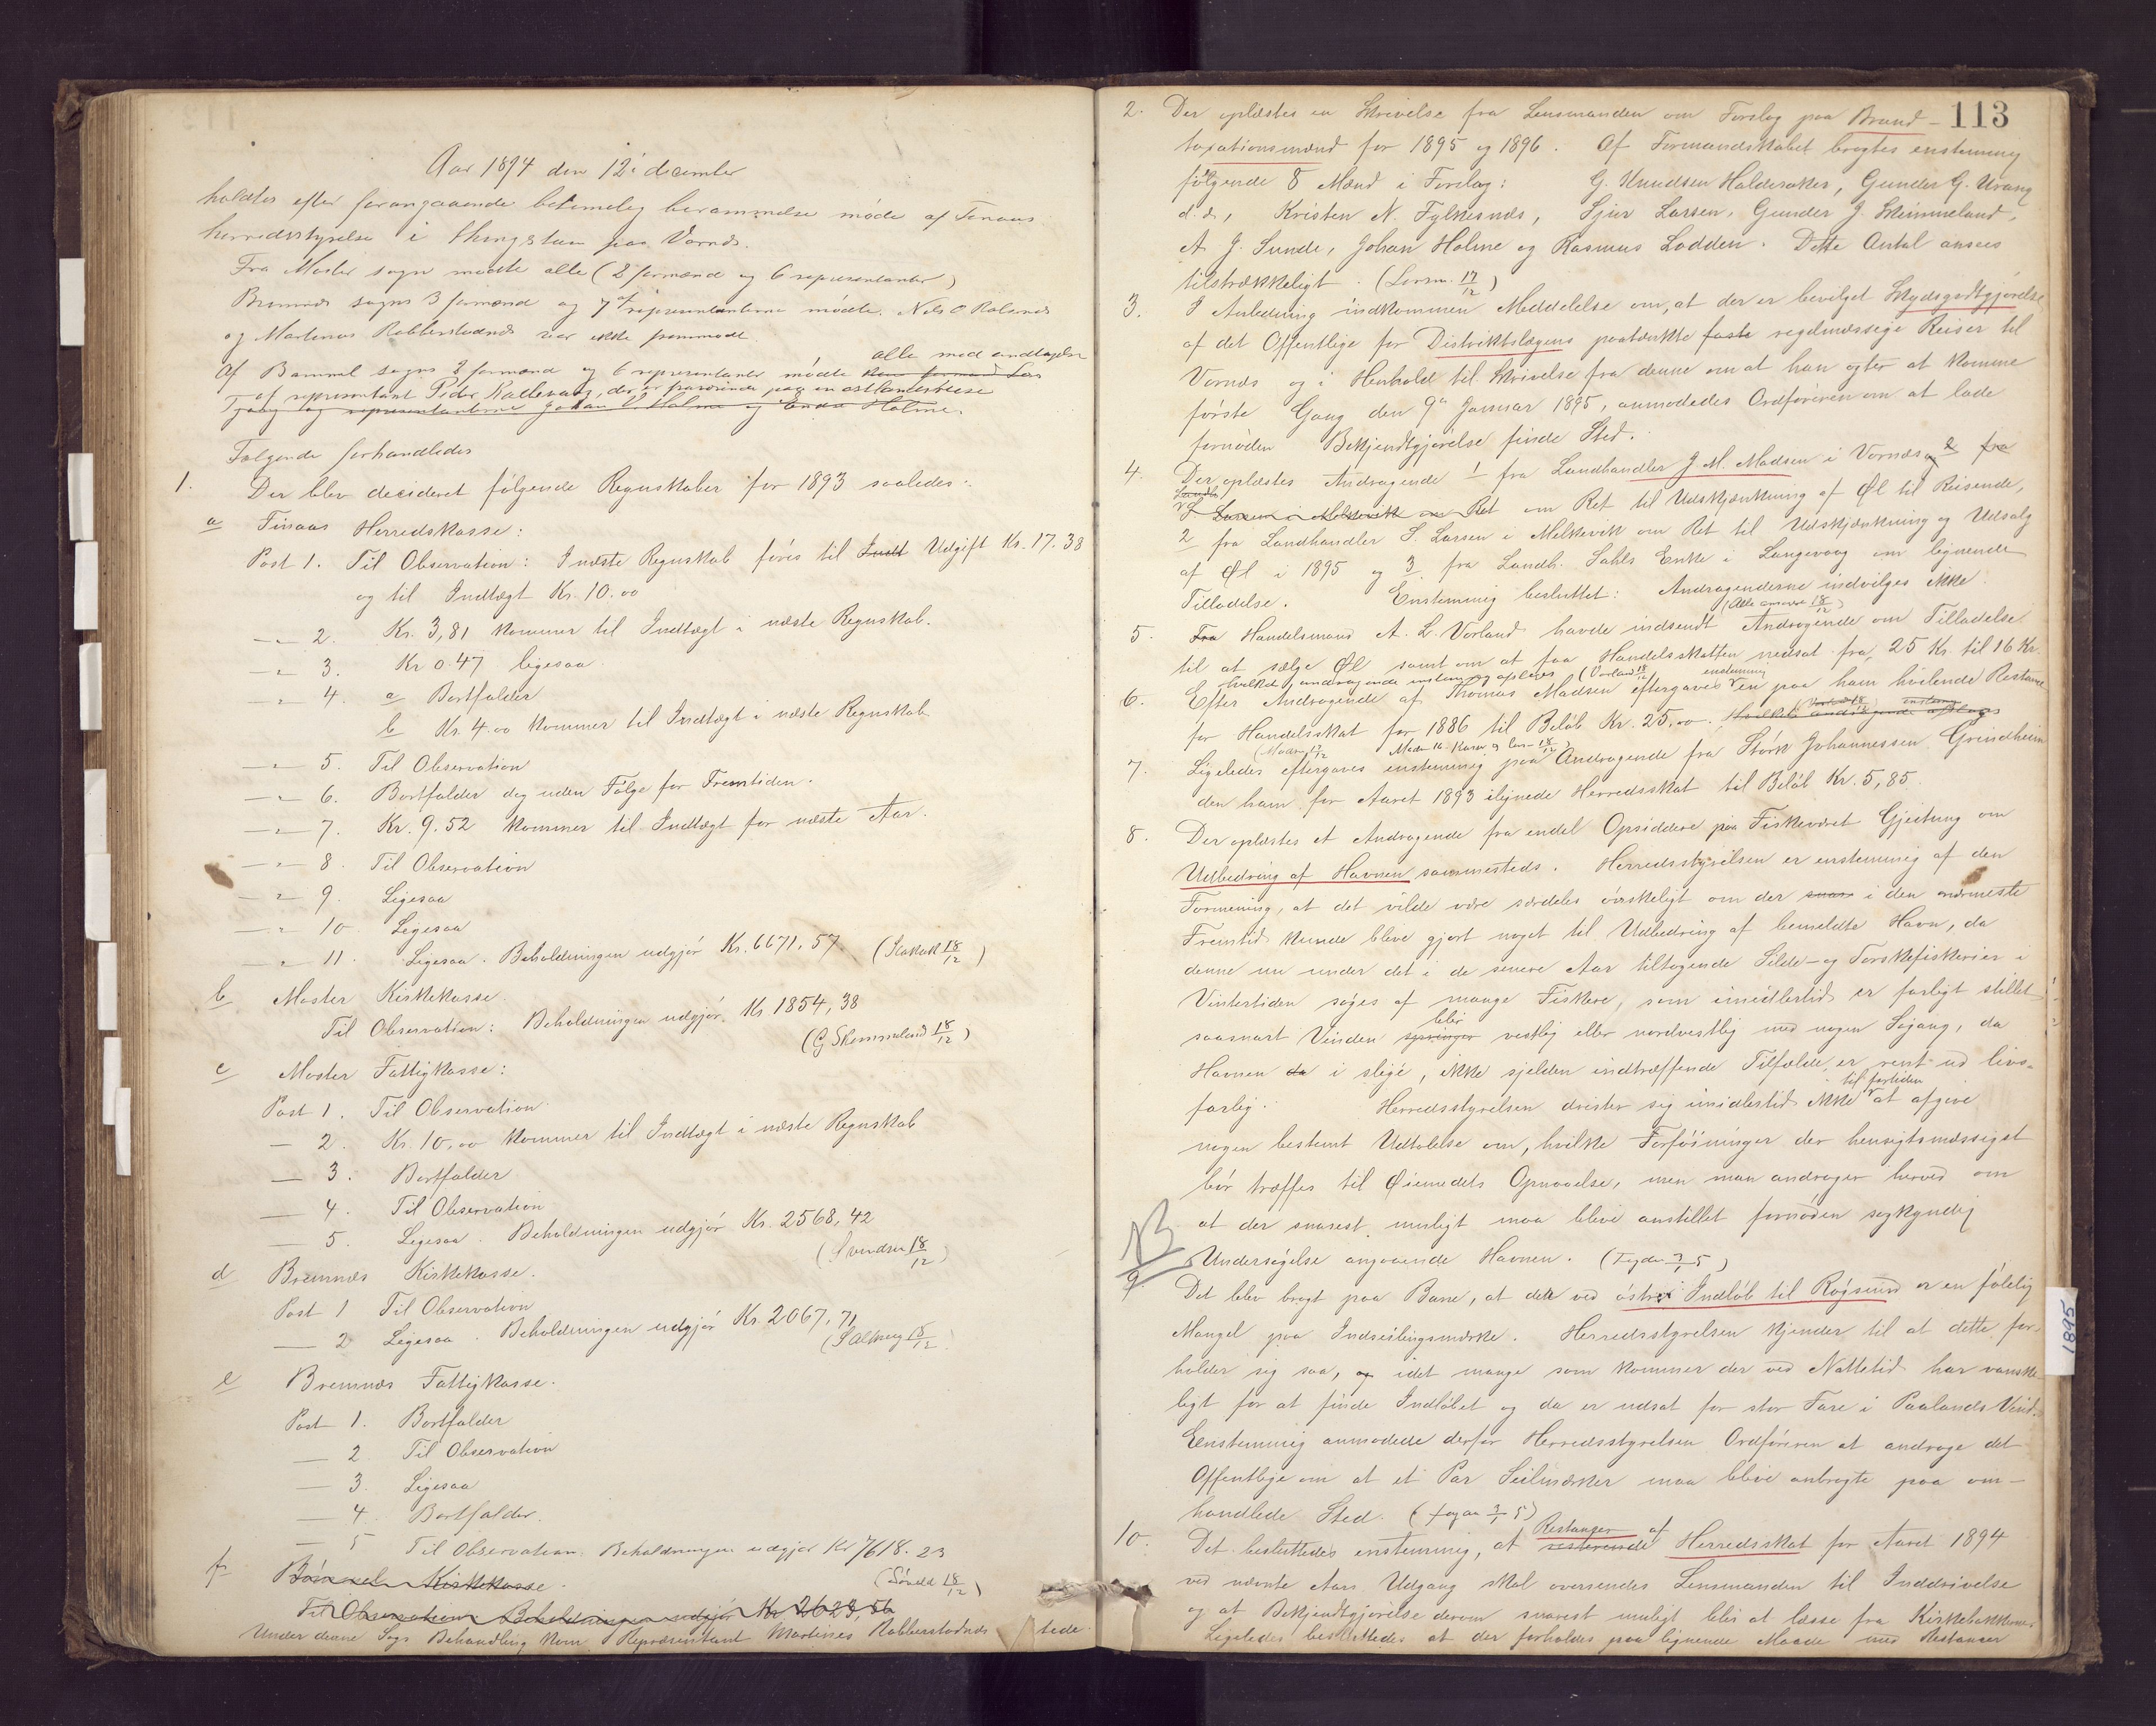 Aar 1894 den 12' december
holdtes efter forangaaende betimelig berammelse møde af Finaas
herredsstyrelse i thingstuen paa Vornes.
Fra Moster sogn mødte alle (2 formænd og 6 representanter)
Bremnæs sogns 3 formænd og 7 af representanterne mødte. Nils O Rolsnes
og Martinus Rabberstadnes var ikke fremmødt.
alle med undtagelse
Af Bømmel sogns 2 formænd og 6 representanter mødte
af representant Peder Kadlevaag, der er fraværende paa en østlandsreise
representanterne Johan V. Holme og Endre Holme.
Følgende forhandledes
1. Der blev decideret følgende Regnskaber for 1893 saaledes:
a Finaas Herredskasse:
Post 1. Til Observation: I næste Regnskab føres til Indt Udgift Kr. 17.38
og til Indtægt Kr. 10.00
-"- 2. Kr. 3,81 kommer til Indtægt i næste Regnskab.
-"- 3. Kr 0.47 ligesaa
-"- 4. a Bortfalder
b Kr. 4.00 kommer til Indtægt i næste Regnskab
-"- 5. Til Observation
-"- 6. Bortfalder dog uden Følge for Fremtiden.
-"- 7. Kr. 9.52 kommer til Indtægt for næste Aar.
-"- 8. Til Observation
-"- 9. Ligesaa
-"- 10 Ligesaa
-"- 11. Ligesaa. Beholdningen udgjør Kr. 6671,57 (18/12)
b Moster Kirkekasse.
Til Observation: Beholdningen udgjør Kr 1854,38
(G Skimmeland 18/12)
c Moster Fattigkasse:
Post 1. Til Observation
— 2. Kr. 10,00 kommer til Indtægt i næste Regnskab
— 3. Bortfalder
— 4. Til Observation
— 5. Ligesaa. Beholdningen udgjør Kr. 2568,42
(Svendsen 18/12)
d Bremnæs Kirkekasse.
Post 1 Til Observation
— 2 Ligesaa. Beholdningen udgjør Kr. 2067,71
(18/12)
e Bremnæs Fattigkasse.
Post 1. Bortfalder
— 2 Til Observation
— 3. Ligesaa
— 4. Bortfalder.
— 5 Til Observation. Beholdningen udgjør Kr 7618.23
(18/12)
f Bømmel Kirkekasse.
Til Observation Beholdningen udgjør Kr. 2628,56
Under denne Sags Behandling kom Repræsentant Martines Rabberstadnes tilstede.
113
2. Der oplæstes en Skrivelse fra Lensmanden om Forslag paa Brand-
taxationsmænd for 1895 og 1896. Af Formandskabet bragtes enstemmig
følgende 8 Mænd i Forslag: G. Knudsen Halderaker, Gunder G. Urang
d.d., Kristen N. Fylkesnæs, Sjur Larsen, Gunder J. Skimmeland,
A. J. Sunde, Johan Holme og Rasmus Lodden. Dette Antal ansees
tilstrækkeligt. (Lensm. 17/12)
3. I Anledning indkommen Meddelelse om, at der er bevilget Skydsgodtgjørelse
af det Offentlige for Distriktslægens paatænkte faste regelmæssige Reiser til
Vornæs og i Henhold til Skrivelse fra denne om at han agter at komme
første Gang den 9de Januar 1895, anmodedes Ordføreren om at lade
fornøden Bekjendtgjørelse finde Sted.
4. Der oplæstes Andragende 1 fra Landhandler J. M. Madsen i Vornæs og 2 fra
Landh. S Larsen i Melkevik om Ret om Ret til Udskjænkning af Øl til Reisende,
2 fra Landhandler S. Larsen i Melkevik om Ret til Udskjænkning og Udsalg
af Øl i 1895 og 3 fra Landh. Sahls Enke i Langevaag om lignende
Tilladelse. Enstemmig besluttet: Andragenderne indvilges ikke.
(Alle 18/12)
5. Fra Handelsmand A. L. Vorland havde indsendt Andragende om Tilladelse
til at sælge Øl samt om at faa Handelsskatten nedsat fra 25 Kr. til 16 Kr.
hvilket andragende enstemmig afsloges (Vorland 18/12) enstemmig
6. Efter Andragende af Thomas Madsen eftergaves en paa ham hvilende Restance
for Handelsskat for 1886 til Beløb Kr. 25.00. Hvilket andragende afsloges
7. Ligeledes eftergaves enstemmig paa Andragende fra Størk Johannessen Grindheim
den ham for Aaret 1893 ilignede Herredsskat til Beløb Kr. 5,85.
8. Der oplæstes et Andragende fra endel Opsiddere paa Fiskeværet Gjeitung om
Udbedring af Havnen sammesteds. Herredsstyrelsen er enstemmig af den
Formening, at det vilde være særdeles ønskeligt om der snar i den nærmeste
Fremtid kunde blive gjort noget til Udbedring af bemeldte Havn, da
denne nu under det i de senere Aar tiltagende Silde- og Torskefiskerier i
Vintertiden søges af mange Fiskere, som imidlertid er farligt stillet
saasnart Vinden springer blir vestlig eller nordvestlig med nogen Søgang, da
Havnen da i slige, ikke sjelden indtræffende Tilfælde, er rent ud livs-
farlig. Herredsstyrelsen drister sig imidlertid ikke til fortiden at afgive
nogen bestemt Udtalelse om, hvilke Forføininger der hensigtsmæssigst
bør træffes til Øiemedets Opnaaelse, men man andrager herved om
at der snarest muligt maa blive anstillet fornøden sagkyndig
Undersøgelse angaaende Havnen. (3/1 5)
NB
9. Det blev bragt paa Bane, at der ved østre Indløb til Røgsund er en følelig
Mangel paa Indseilingsmærke. Herredsstyrelsen kjender til at dette for-
holder sig saa, og idet mange som kommer der ved Nattetid har vanske-
ligt for at finde Indløbet og da er udsat for stor Fare i Paalands Vind.
Eenstemmig anmodede derfor Herredsstyrelsen Ordføreren at andrage det
Offentlige om at et Par Seilmærker maa blive anbragte paa om-
handlede Sted. (3/1 5)
10. Det besluttedes enstemmig, at resterende Restanser af Herredsskat for Aaret 1894
ved nævnte Aars Udgang skal oversendes Lensmanden til Inddrivelse
og at Bekjendtgjørelse derom snarest muligt blir at læsse fra Kirkebakkerne.
Ligeledes besluttedes at der forholdes paa lignende Maade med Restanser
1895